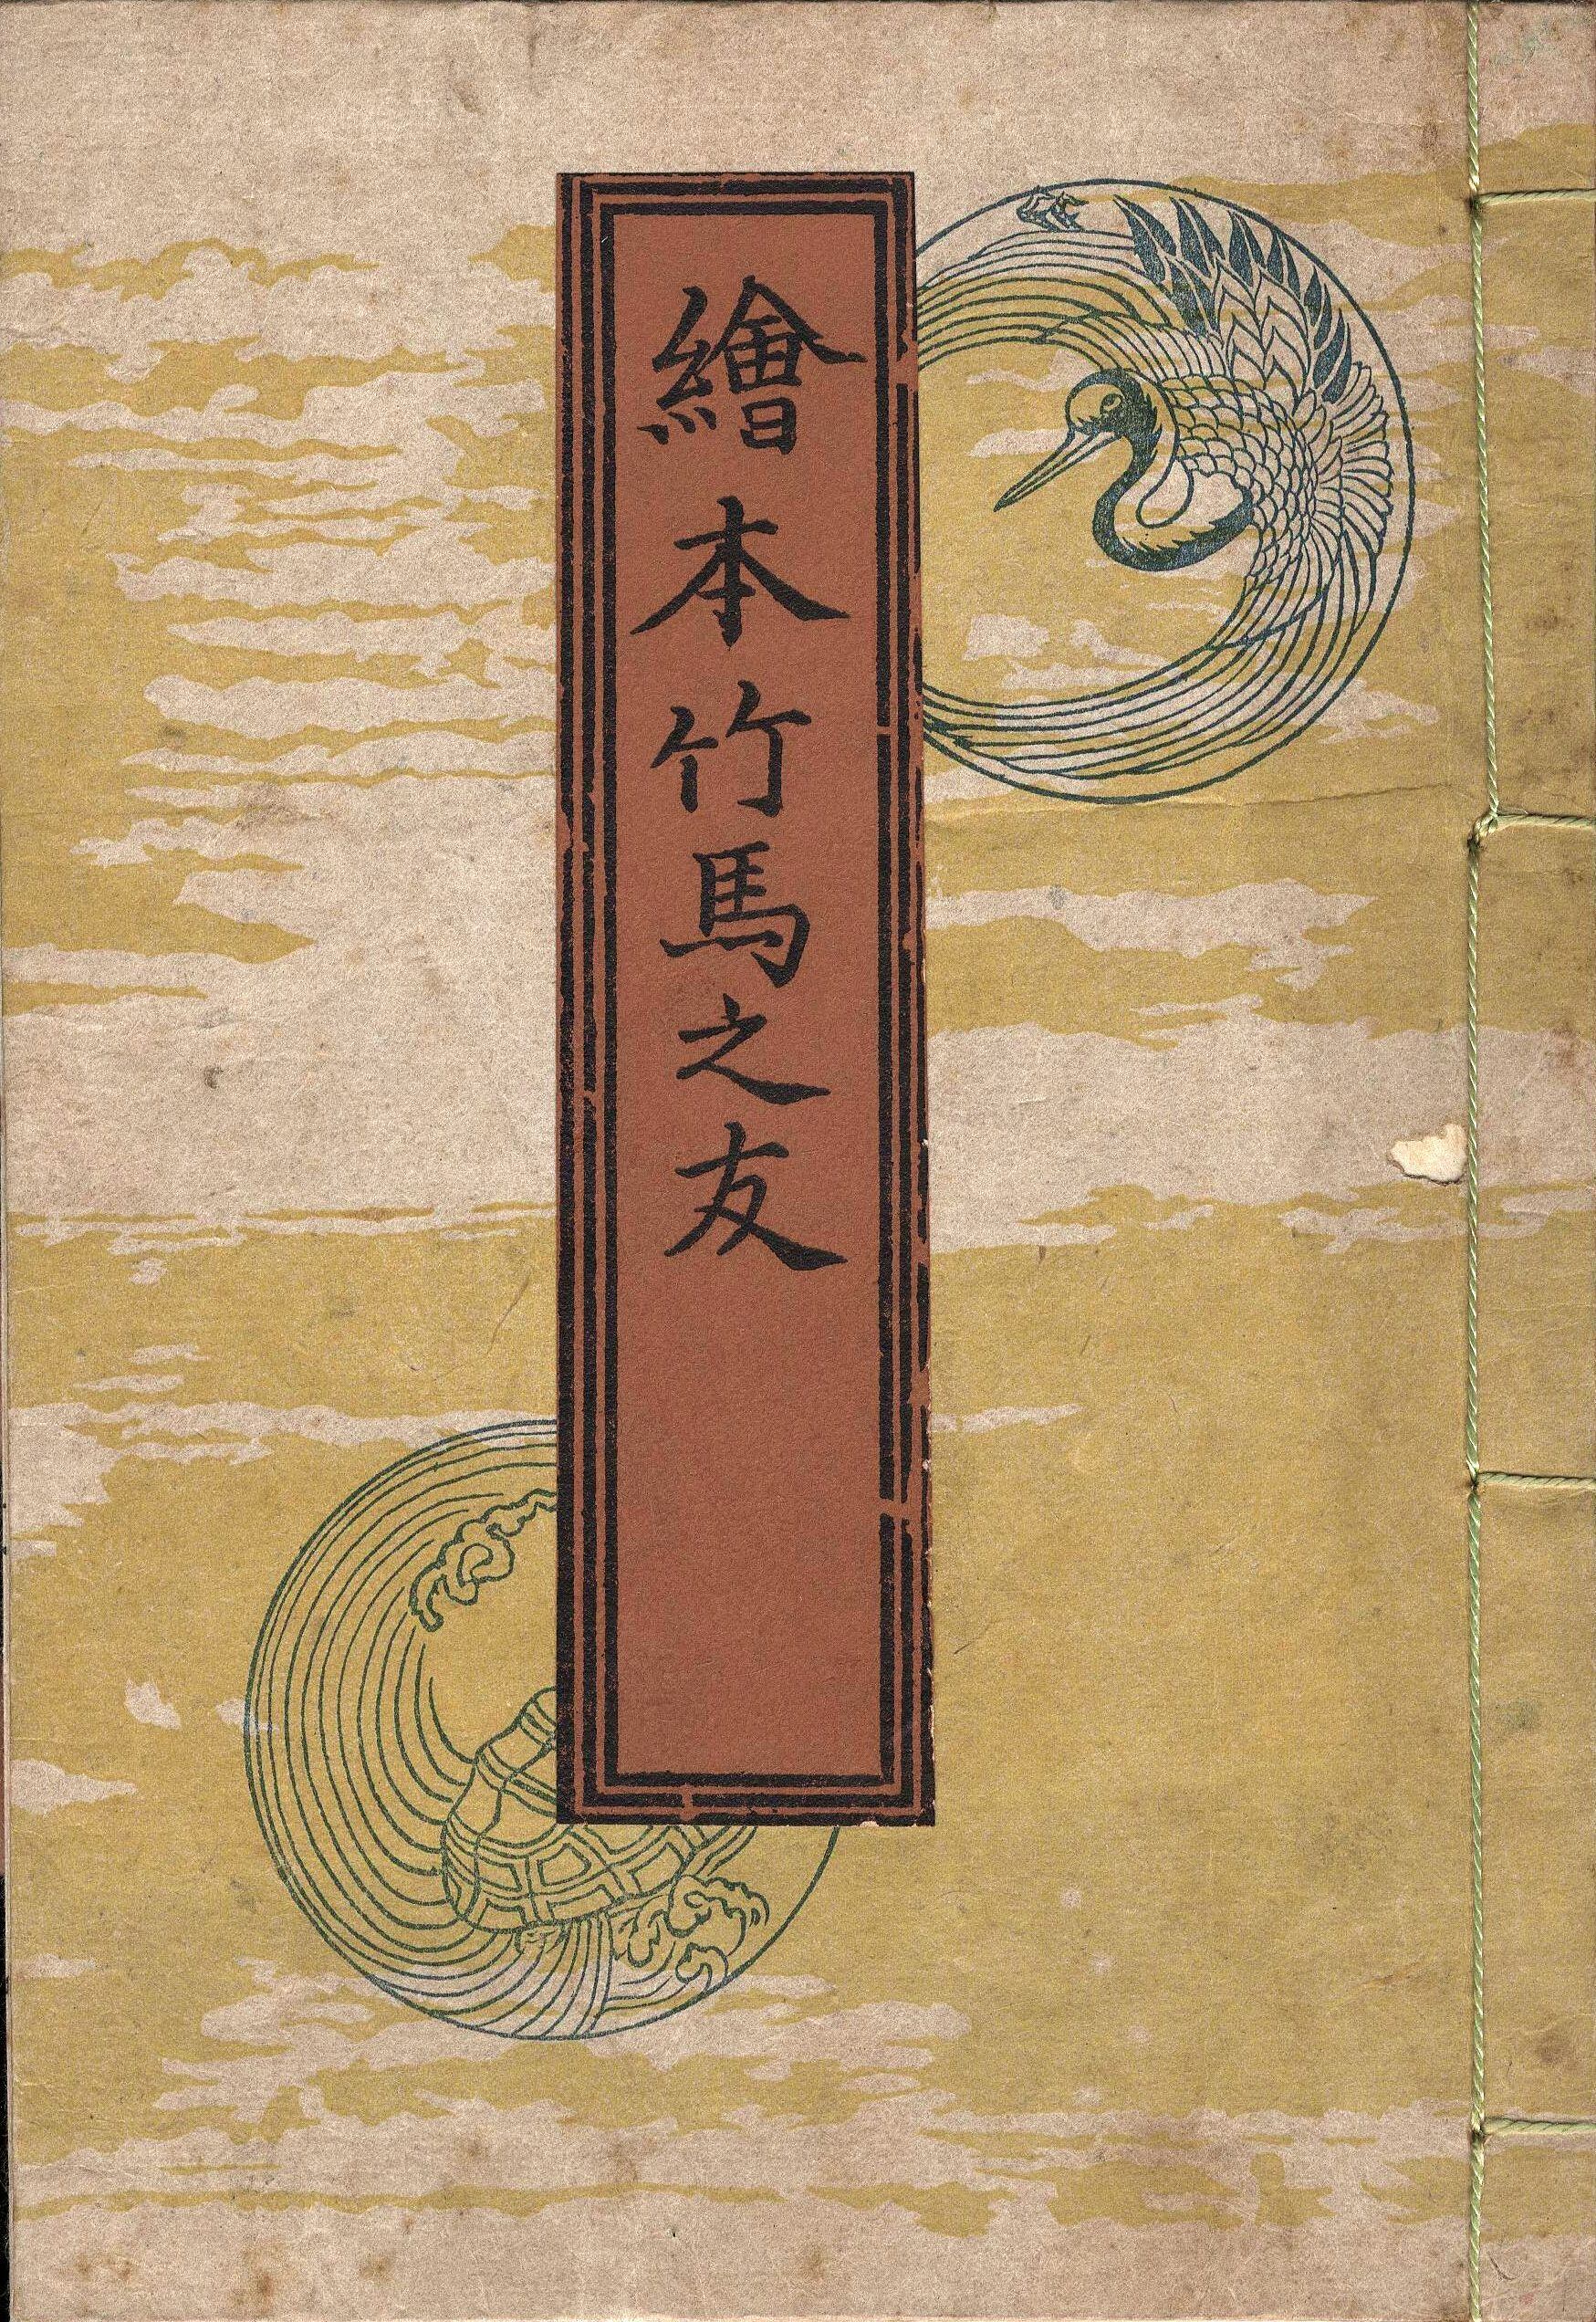 繪本竹馬之友